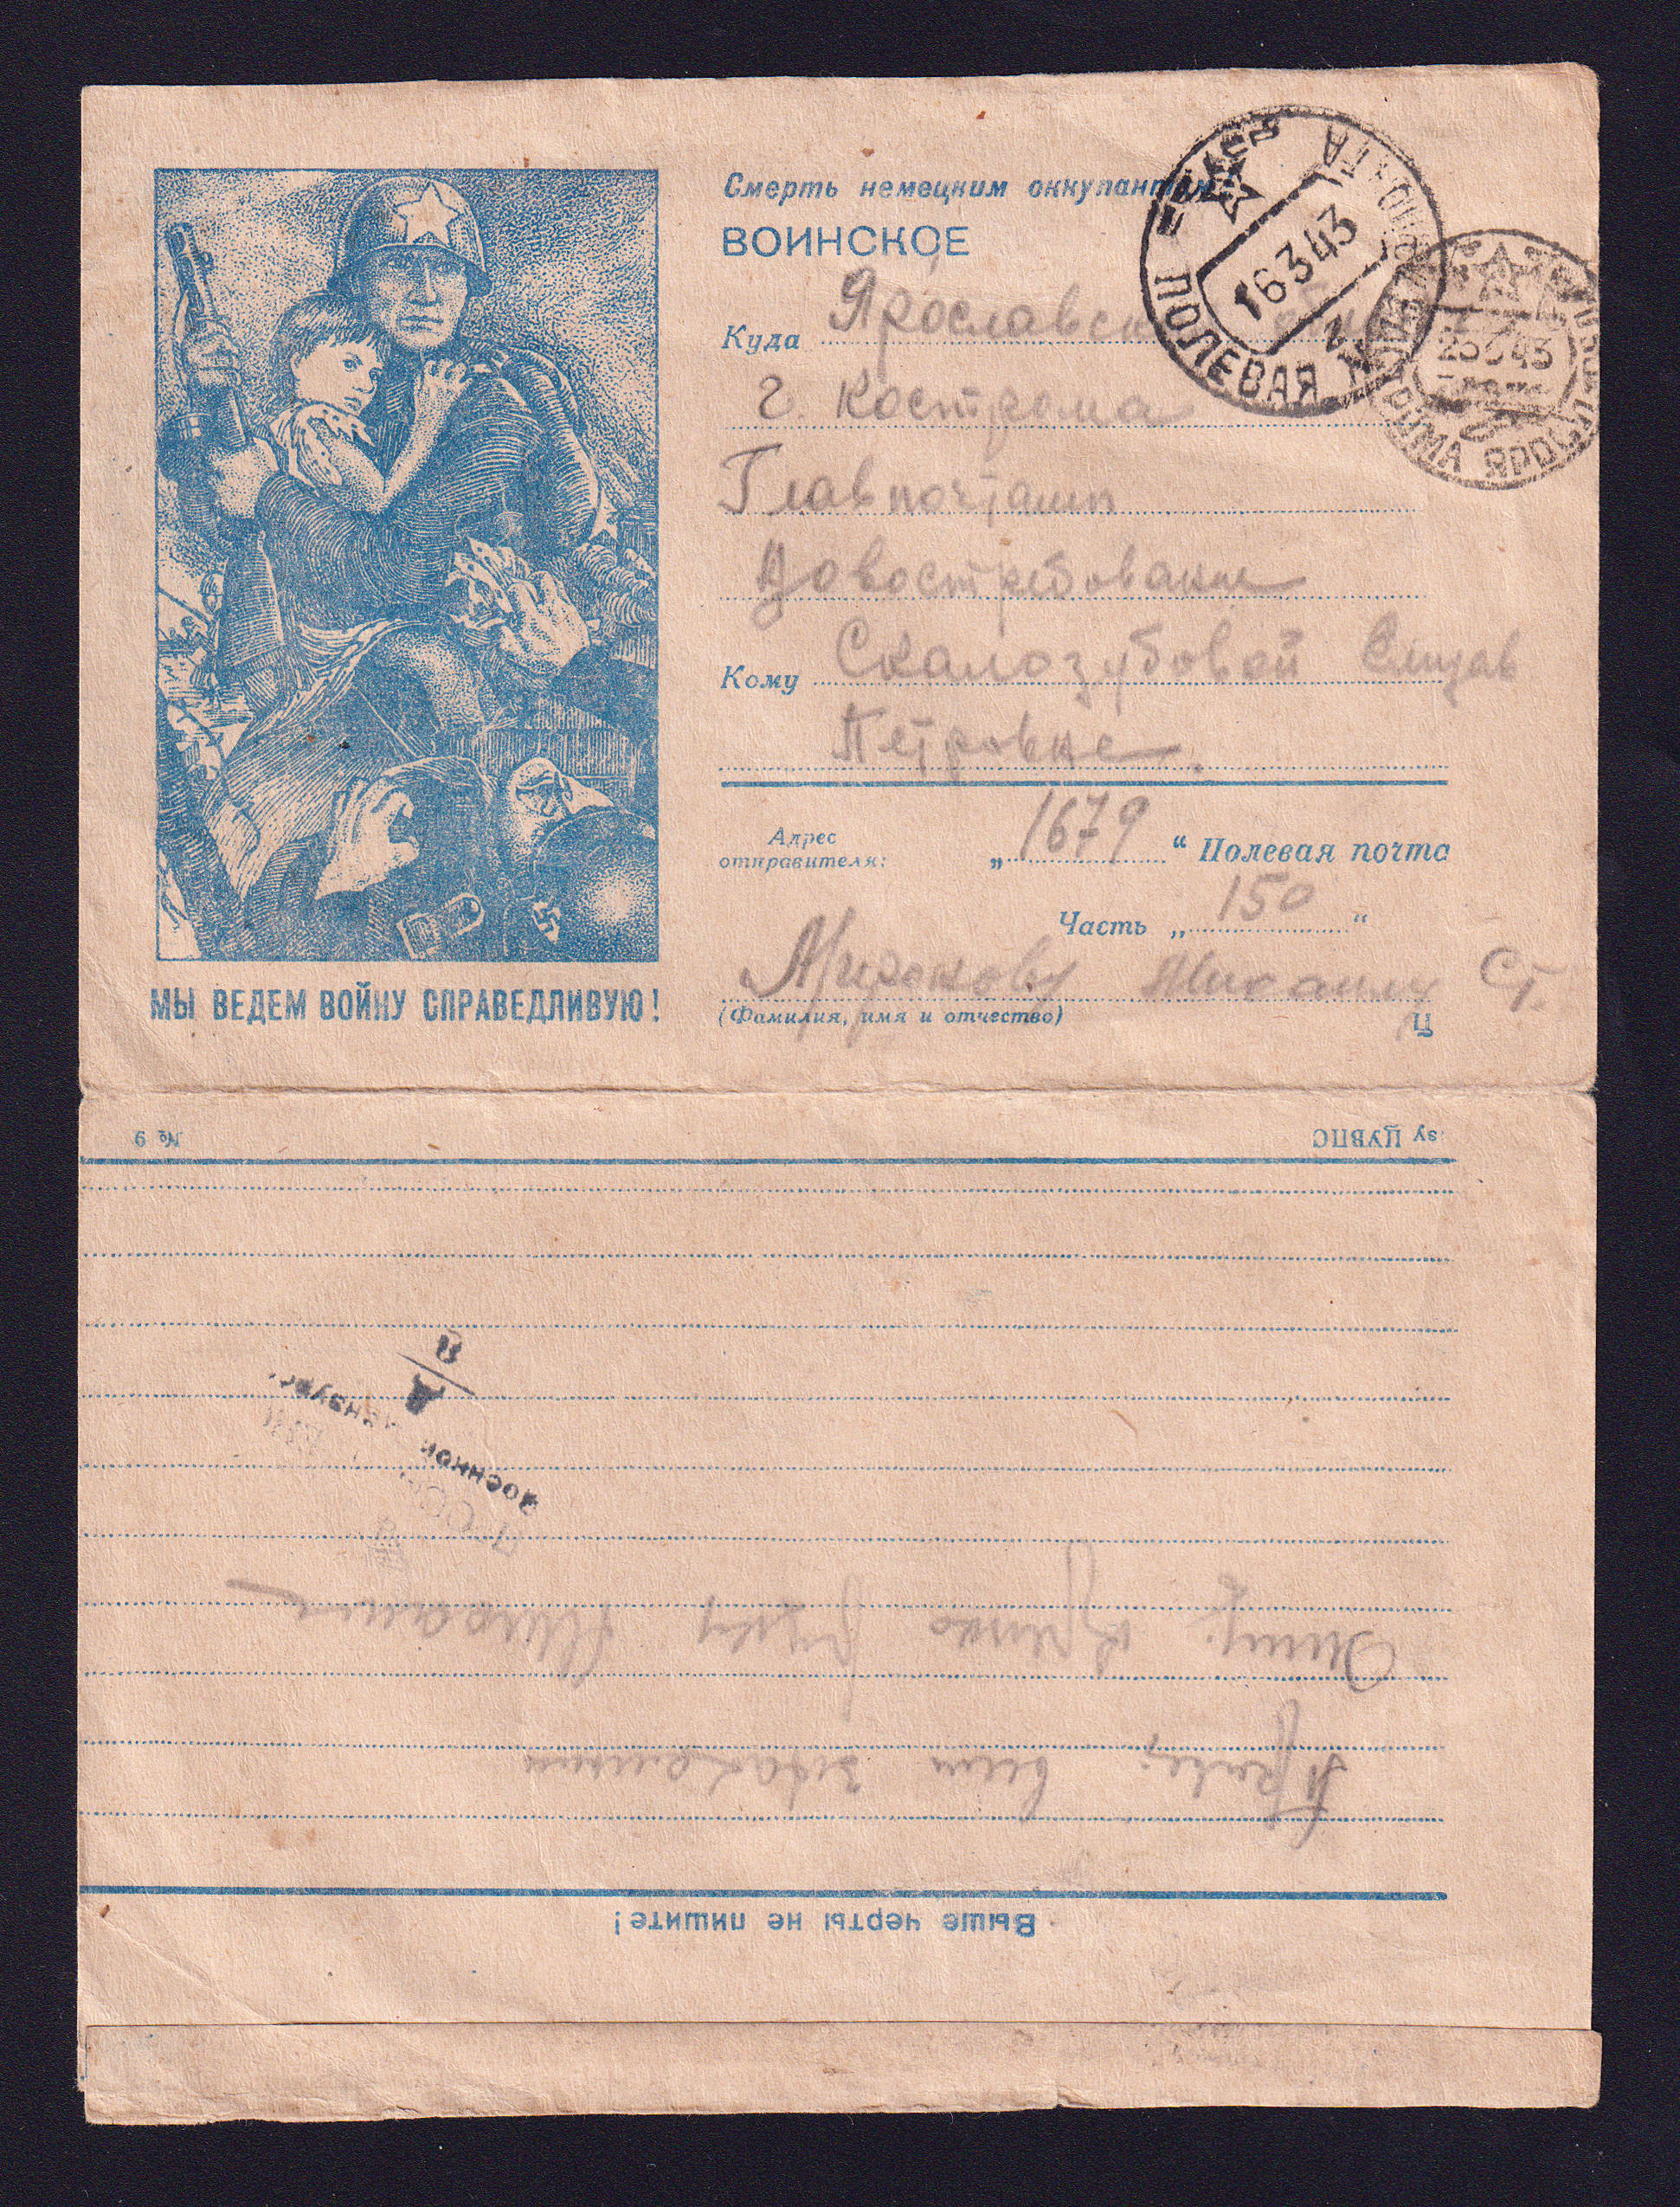 Смерть немецким оккупантам
ВОИНСКОЕ
Куда Ярославск
г. Кострома
Главпочтамп
Довостребование
Кому Скалозубовой Елизав
Петровне.
Адрес
отправителя: „1679“ Полевая почта
Часть „150“
Миронову Михаилу Ст.
(Фамилия, имя и отчество)
Ц
МЫ ВЕДЕМ ВОЙНУ СПРАВЕДЛИВУЮ!
ПОЛЕВАЯ ПОЧТА
16 3 43
23 3 43
РОМА ЯРОС
№ 9
ЦУВПС
Д
военной
Выше черты не пишите!
Привет всем знакомым
Жму крепко руку Михаил